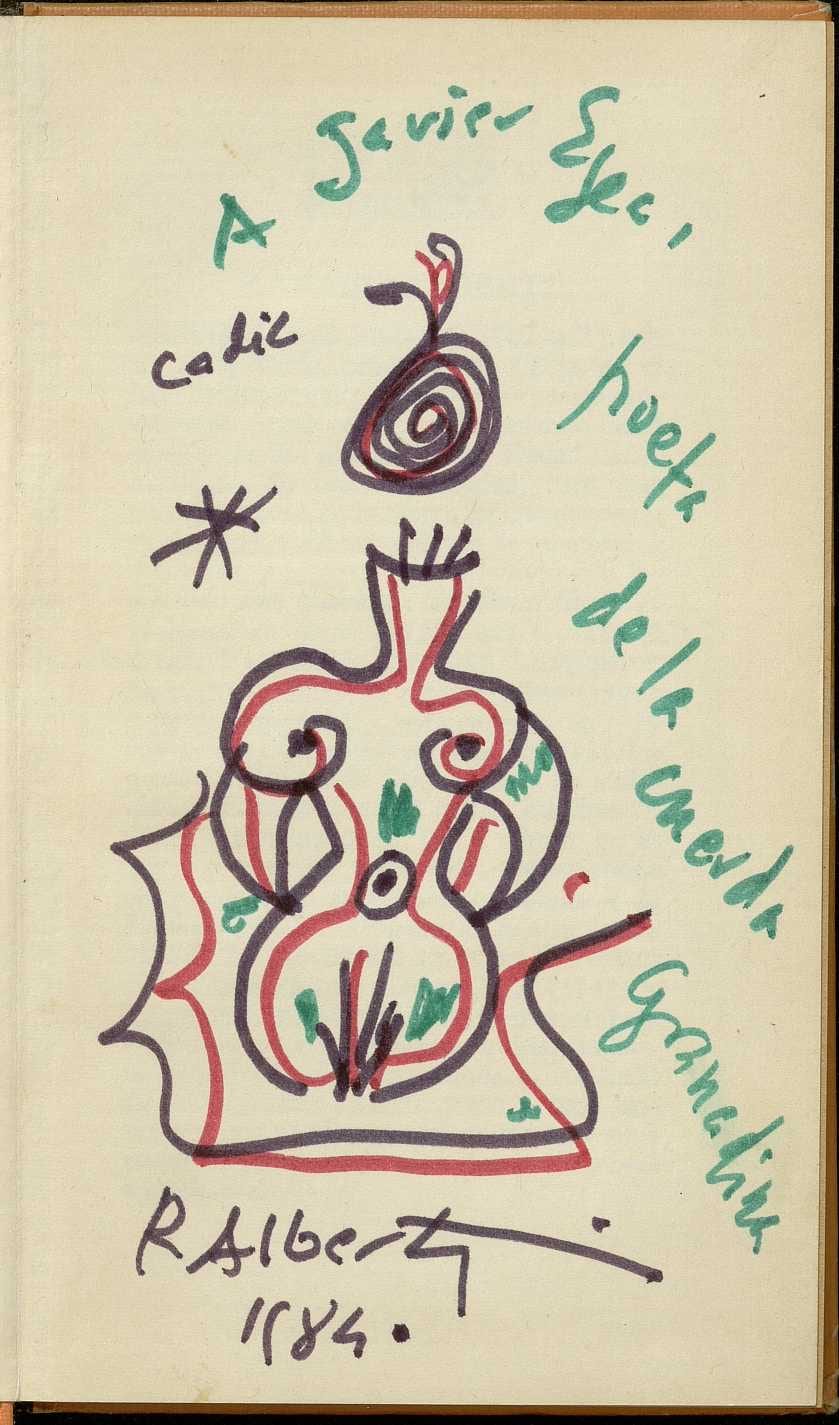 A Javier Egea,
poeta
de la
cuerda
granadina
Cadiz
R Alberti
1984.